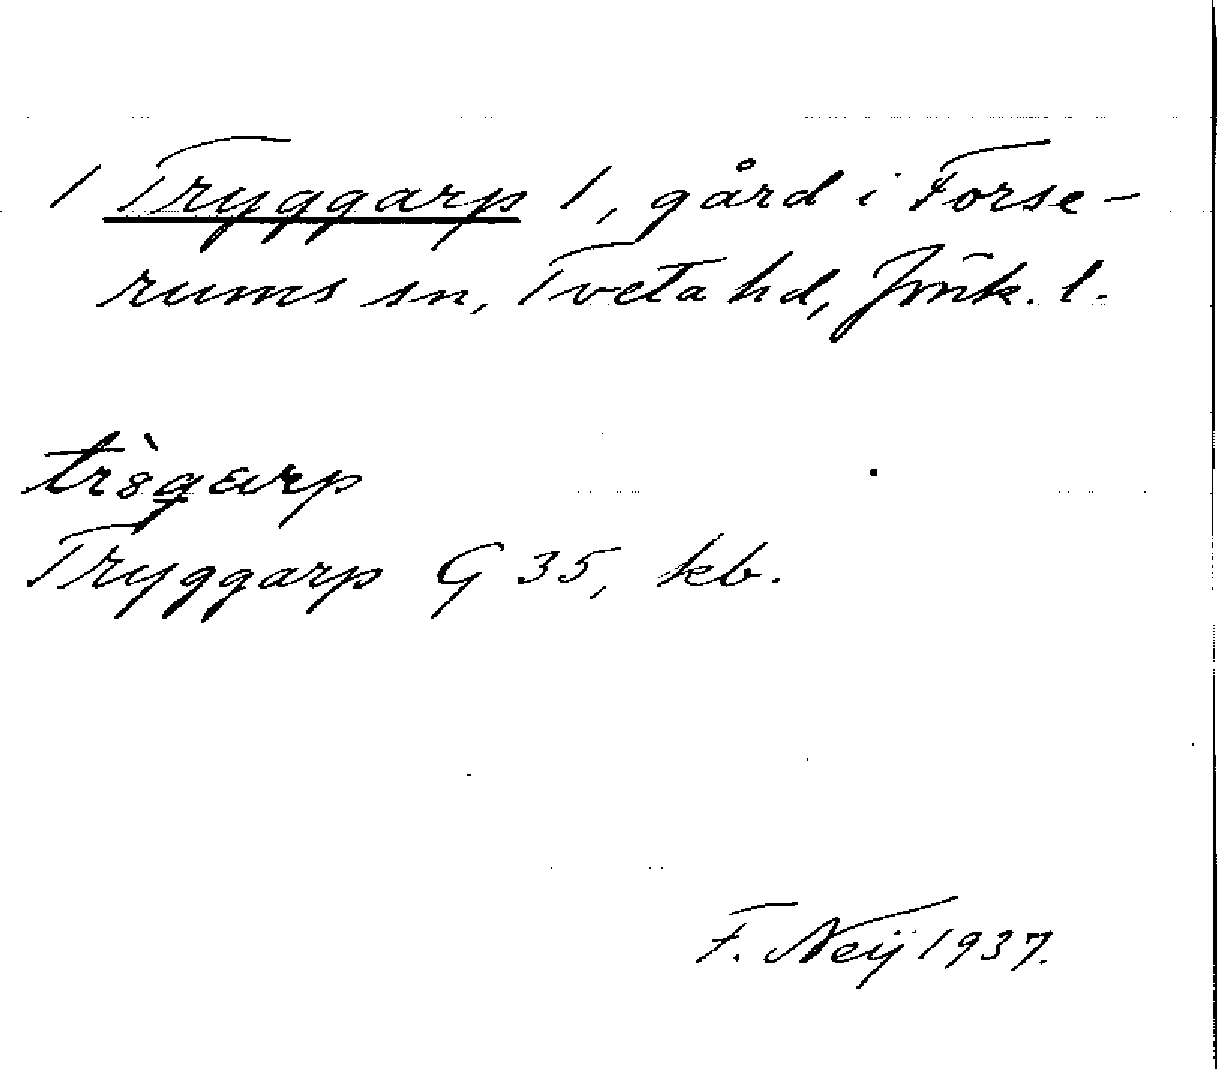 1 Tryggarp 1, gård i Forse-
rums sn, Tveta hd, Jönk. l.
Tryggarp G 35, kb.
F. Neij 1937.